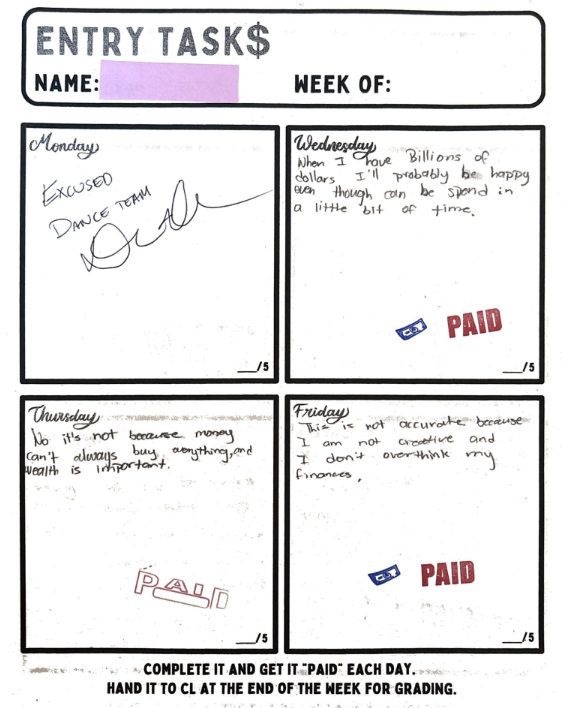 ENTRY TASK$
NAME:
WEEK OF:
Monday
EXCUSED
DANCE TEAM
___/5
Wednesday
When I have Billions of
dollars I'll probably be happy
even though can be spend in
a little bit of time.
PAID
___/5
Thursday
No it's not because money
can't always buy everything, and
wealth is important.
PAID
___/5
Friday
This is not accurate because
I am not creative and
I don't overthink my
finances.
PAID
___/5
COMPLETE IT AND GET IT "PAID" EACH DAY.
HAND IT TO CL AT THE END OF THE WEEK FOR GRADING.